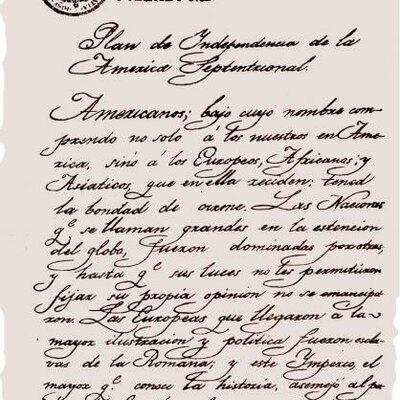 Plan de Independencia de la
America Septentrional.
Americanos; bajo cuyo nombre com-
prendo no solo á los nuestros en Ame-
rica, sino á los Europeos, Africanos; y
Asiaticos que en ella reciden: tened
la bondad de oirme. Las Naciones
q.e se llaman grandes en la estencion
del globo, fueron dominadas por otras,
y hasta q.e sus luces no les permitieron
fijar su propia opinion no se emancipa-
ron. Las Europeas que llegaron á la
mayor ilustracion y politica fueron escla-
vas de la Romana; y este Imperio, el
mayor q.e conoce la historia, asemejó al pa-